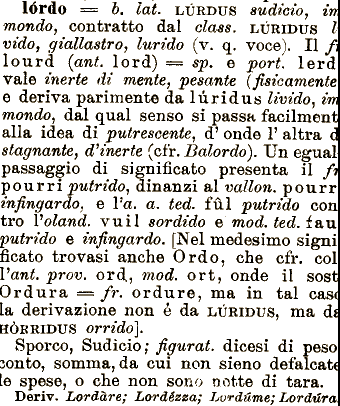 lórdo = b. lat. LÚRDUS sudicio, im
mondo, contratto dal class. LÚRIDUS l
vido, giallastro, lurido (v. q. voce). Il f
lourd (ant. lord) = sp. e port. lerd
vale inerte di mente, pesante (fisicamente
e deriva parimente da lúridus livido, im
mondo, dal qual senso si passa facilment
alla idea di putrescente, d'onde l'altra d
stagnante, d'inerte (cfr. Balordo). Un egual
passaggio di significato presenta il fr
pourri putrido, dinanzi al vallon. pourr
infingardo, e l'a. a. ted. fûl putrido con
tro l'oland. vuil sordido e mod. ted. fau
putrido e infingardo. [Nel medesimo signi
ficato trovasi anche Ordo, che cfr. col
l'ant. prov. ord, mod. ort, onde il sost
Ordura = fr. ordure, ma in tal caso
la derivazione non é da LÚRIDUS, ma da
HÒRRIDUS orrido].
Sporco, Sudicio; figurat. dicesi di peso
conto, somma, da cui non sieno defalcate
le spese, o che non sono notte di tara.
Deriv. Lordàre; Lordézza; Lordúme; Lordúra